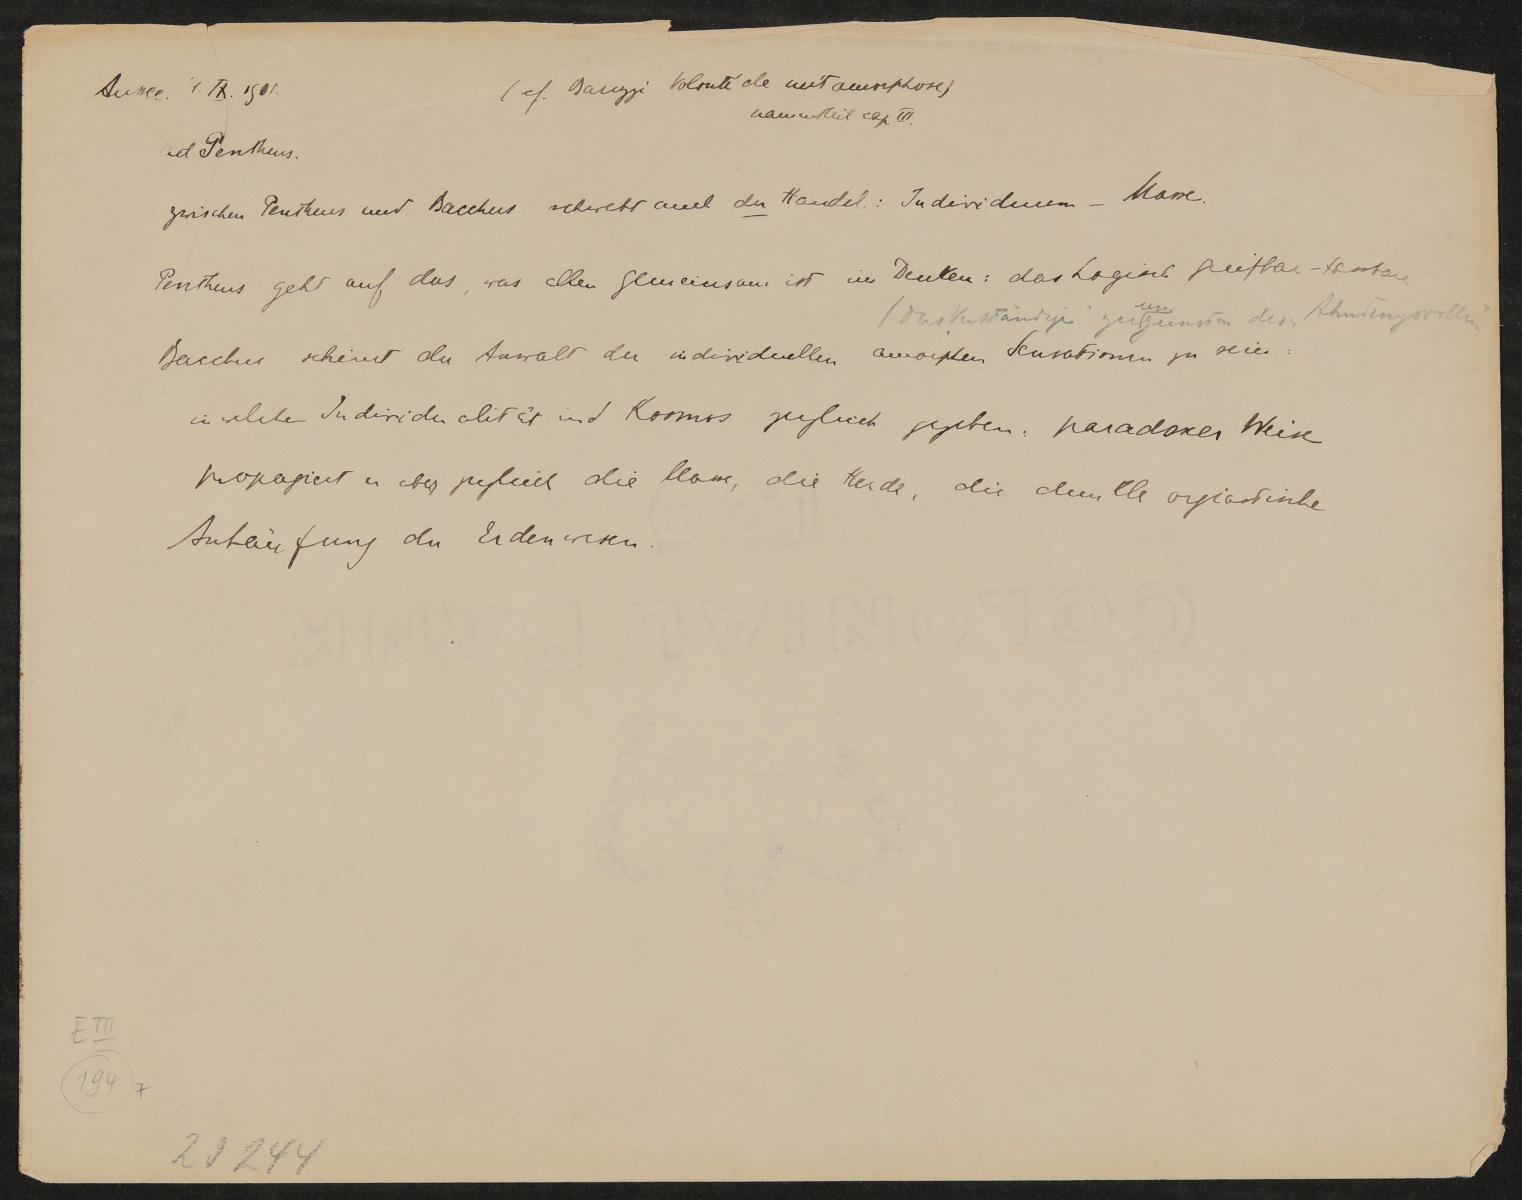 Aussee. 4. IX. 1911.
(cf. Baruzi Volonté de métamorphose)
namentlich cap III.
ad Pentheus.
zwischen Pentheus und Bacchus schwebt auch der Handel: Individuum – Masse.
Pentheus geht auf das, was allen gemeinsam ist im Denken: das Logisch greifbar-tastbare
("das Verständige" zuungunsten des "Ahndungsvollen"
Bacchus scheint der Anwalt der individuellen amorphen Sensationen zu sein:
in welchen Individualität und Kosmos zugleich gegeben: paradoxer Weise
propagiert er aber zugleich die Masse, die Herde, die dunkle orgiastische
Anhäufung der Erdenwesen.
COLONIAL BANK
E III
194
7